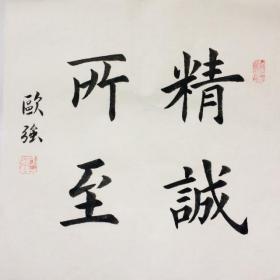 精誠
所至
歐強